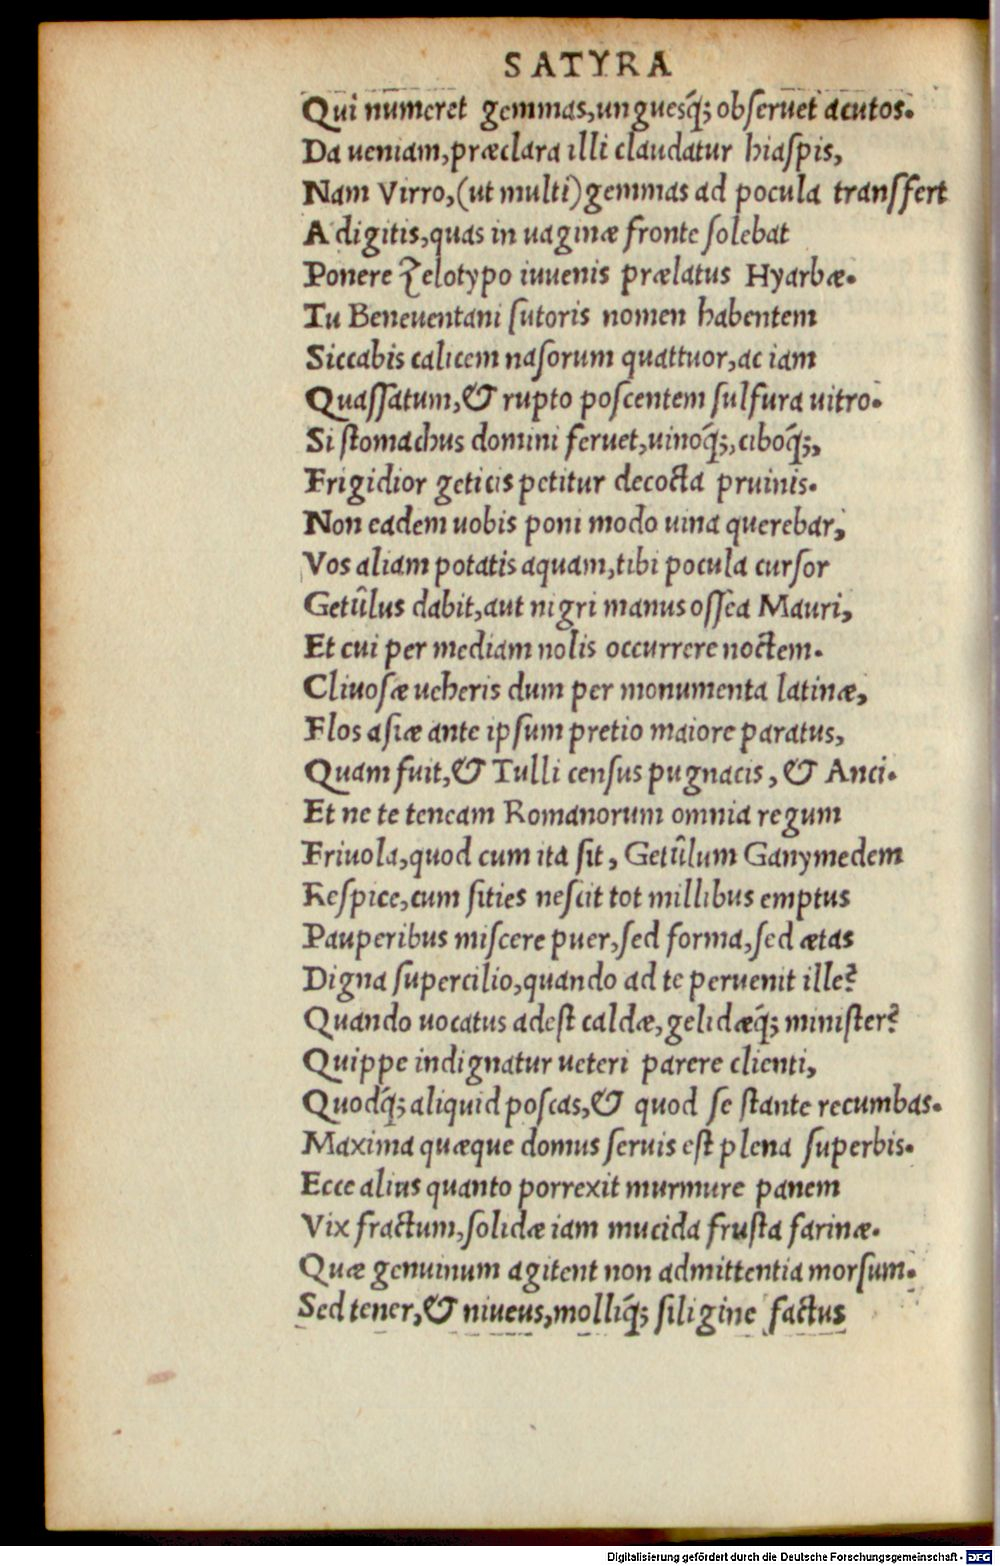 SATYRA
Qui numeret gemmas,unguesq́; obſeruet acutos.
Da ueniam,præclara illi claudatur hiaſpis,
Nam Virro,(ut multi)gemmas ad pocula tranſfert
A digitis,quas in uaginæ fronte ſolebat
Ponere Zelotypo iuuenis prælatus Hyarbæ.
Tu Beneuentani ſutoris nomen habentem
Siccabis calicem naſorum quattuor,ac iam
Quaſſatum,& rupto poſcentem ſulfura uitro.
Si ſtomachus domini feruet,uinoq́;,ciboq́;,
Frigidior geticis petitur decocta pruinis.
Non eadem uobis poni modo uina querebar,
Vos aliam potatis aquam,tibi pocula curſor
Getûlus dabit,aut nigri manus oſſea Mauri,
Et cui per mediam nolis occurrere noctem.
Cliuoſæ ueheris dum per monumenta latinæ,
Flos aſiæ ante ipſum pretio maiore paratus,
Quam fuit,& Tulli cenſus pugnacis, & Anci.
Et ne te teneam Romanorum omnia regum
Friuola,quod cum ita ſit, Getûlum Ganymedem
Reſpice,cum ſities neſcit tot millibus emptus
Pauperibus miſcere puer,ſed forma,ſed ætas
Digna ſupercilio,quando ad te peruenit ille?
Quando uocatus adeſt caldæ,gelidæq́; miniſter?
Quippe indignatur ueteri parere clienti,
Quodq́; aliquid poſcas,& quod ſe ſtante recumbas.
Maxima quæque domus ſeruis eſt plena ſuperbis.
Ecce alius quanto porrexit murmure panem
Vix fractum,ſolidæ iam mucida fruſta farinæ.
Quæ genuinum agitent non admittentia morſum.
Sed tener,& niueus,molliq́; ſiligine factus
Digitalisierung gefördert durch die Deutsche Forschungsgemeinschaft - DFG